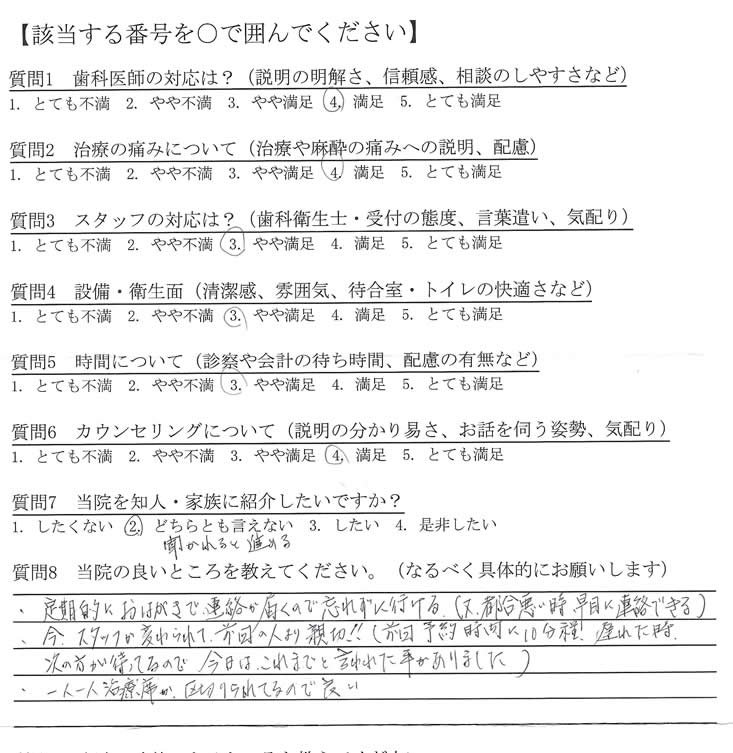 【該当する番号を○で囲んでください】
質問1 歯科医師の対応は？（説明の明解さ、信頼感、相談のしやすさなど）
1. とても不満 2. やや不満 3. やや満足 4. 満足 5. とても満足
質問2 治療の痛みについて（治療や麻酔の痛みへの説明、配慮）
1. とても不満 2. やや不満 3. やや満足 4. 満足 5. とても満足
質問3 スタッフの対応は？（歯科衛生士・受付の態度、言葉遣い、気配り）
1. とても不満 2. やや不満 3. やや満足 4. 満足 5. とても満足
質問4 設備・衛生面（清潔感、雰囲気、待合室・トイレの快適さなど）
1. とても不満 2. やや不満 3. やや満足 4. 満足 5. とても満足
質問5 時間について（診察や会計の待ち時間、配慮の有無など）
1. とても不満 2. やや不満 3. やや満足 4. 満足 5. とても満足
質問6 カウンセリングについて（説明の分かり易さ、お話を伺う姿勢、気配り）
1. とても不満 2. やや不満 3. やや満足 4. 満足 5. とても満足
質問7 当院を知人・家族に紹介したいですか？
1. したくない 2. どちらとも言えない 3. したい 4. 是非したい
聞かれると進める
質問8 当院の良いところを教えてください。（なるべく具体的にお願いします）
・定期的におはがきで連絡が届くので忘れずに行ける（又、都合悪い時早目に連絡できる）
・今、スタッフが変わられて、前回の人より親切!!（前回予約時間に10分程！遅れた時、
次の方が待ってるので 今日は、これまでと言われた事がありました）
・一人一人治療庫が、区切りられてるので良い